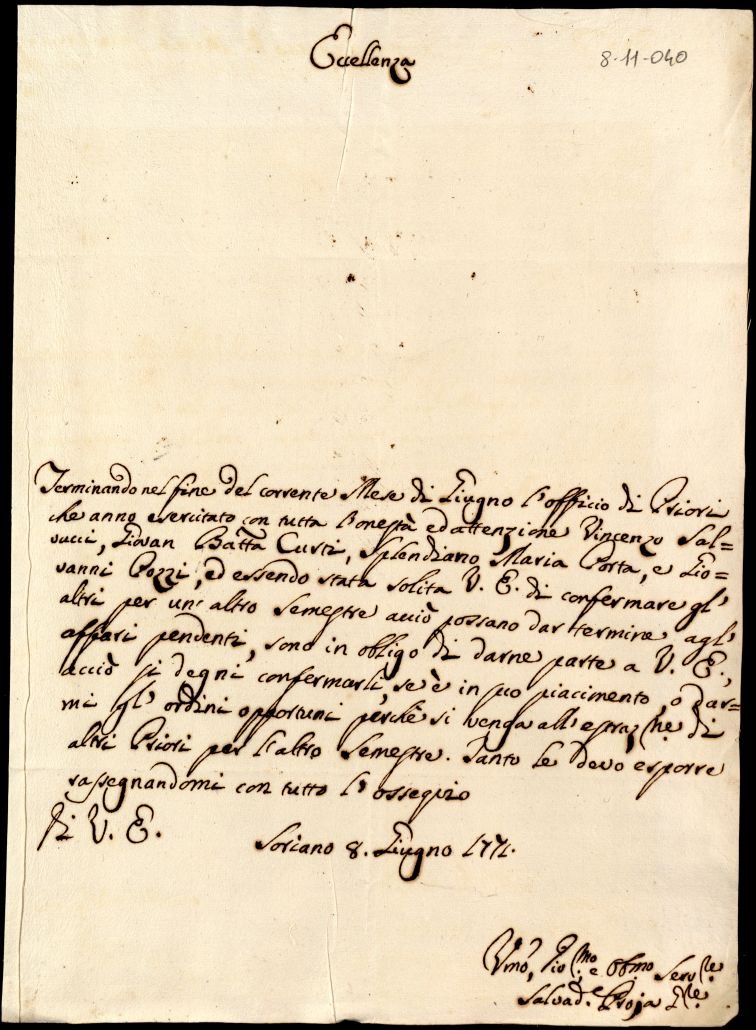 Eccellenza
8-11-040
Terminando nel fine del corrente Mese di Giugno l'officio di Priori
che anno esercitato con tutta l'onestà ed attenzione Vincenzo Sal=
vucci, Giovan Batta Curti, Splendiano Maria Porta, e Gio=
vanni Pozzi, ed essendo stata solita V. E. di confermare gl'
altri per un' altro Semestre acciò possano dar termine agl'
affari pendenti, sono in obligo di darne parte a V. E.,
acciò si degni confermarli, se è in suo piacimento, o dar=
mi gl' ordini opportuni perchè si venga all'estraz:ne di
altri Priori per l'altro Semestre. Tanto le devo esporre
rassegnandomi con tutto l'ossequio
Di V. E.
Soriano 8. Giugno 1771.
Umo, e Obbmo Serv:re
Salvad.e Proja